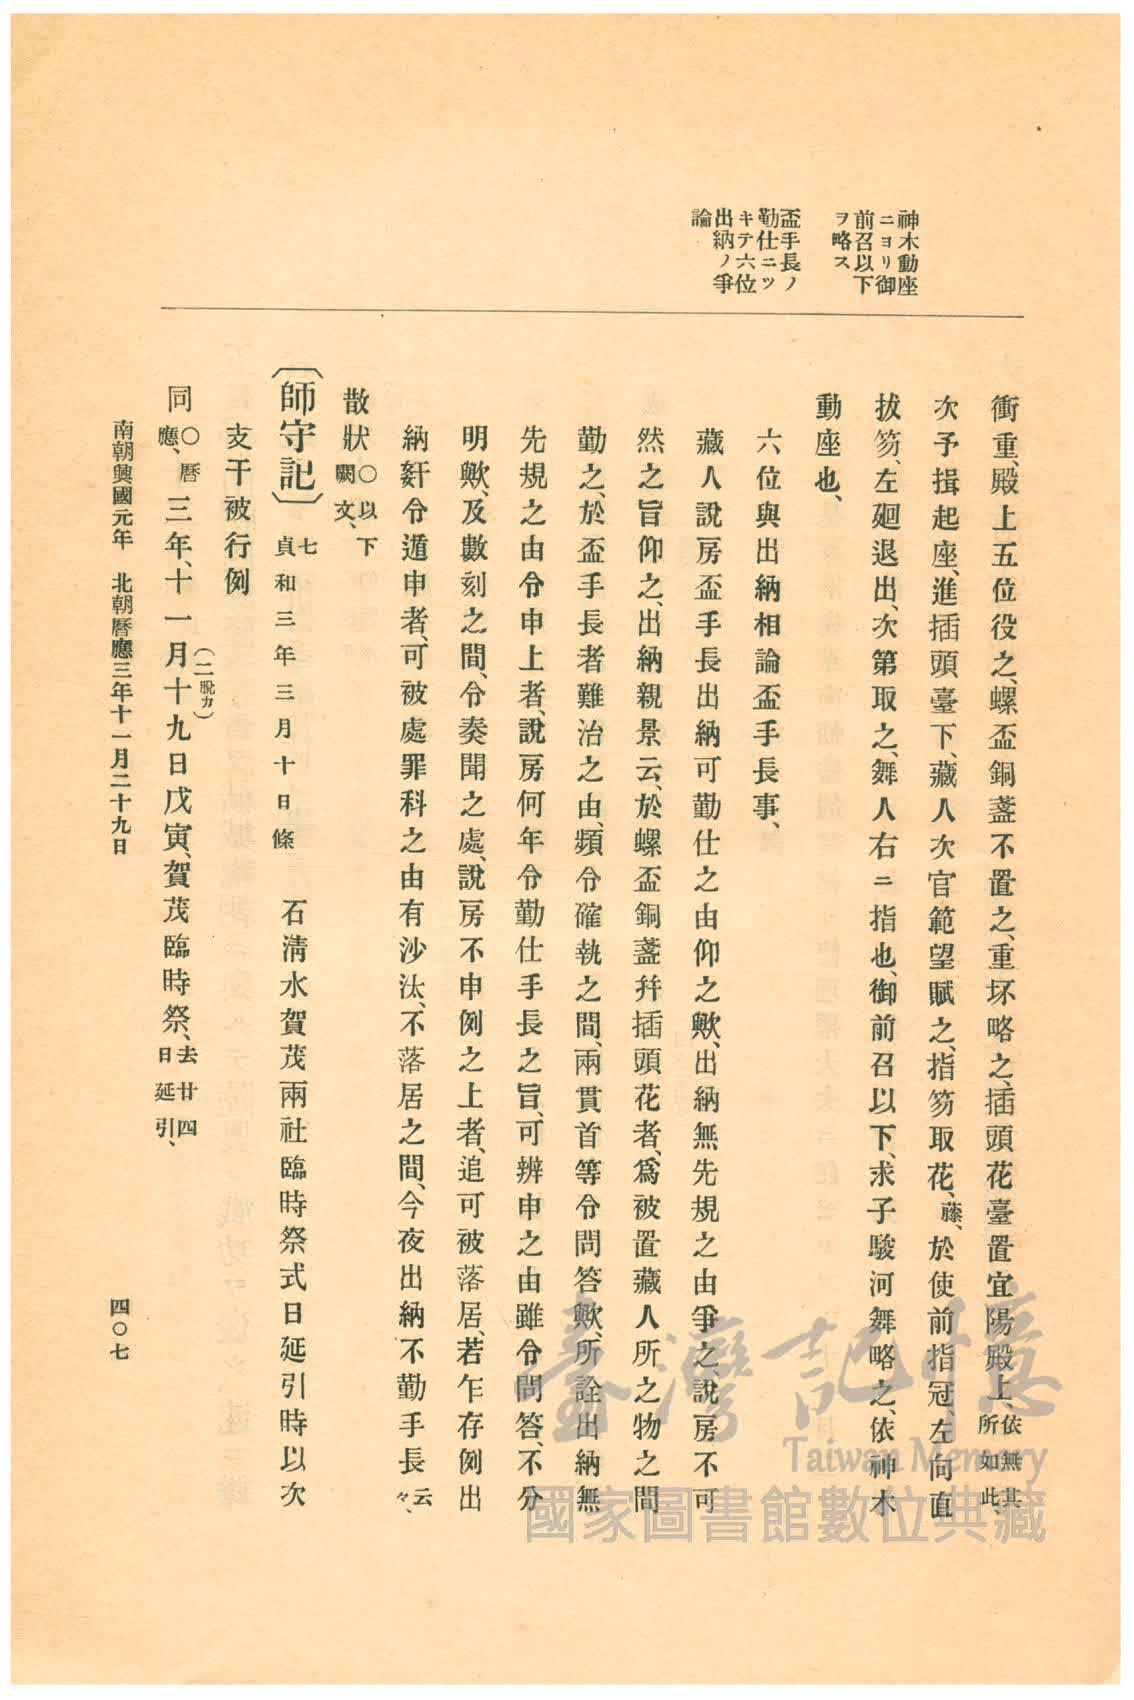 神木動座
ニヨリ御
前召以下
ヲ略ス
盃手長ノ
勤仕ニツ
キテ六位
出納ノ爭
論
衝重、殿上五位役之、螺盃銅盞不置之、重坏略之、插頭花臺置宜陽殿上、依無其所如此、
次予揖起座、進插頭臺下、藏人次官範望賦之、指笏取花、藤、於使前指冠、左向直
拔笏、左廻退出、次第取之、舞人右ニ指也、御前召以下、求子駿河舞略之、依神木
動座也、
六位與出納相論盃手長事、
藏人說房盃手長出納可勤仕之由仰之歟、出納無先規之由爭之、說房不可
然之旨仰之、出納親景云、於螺盃銅盞幷插頭花者、爲被置藏人所之物之間
勤之、於盃手長者難治之由、頻令確執之間、兩貫首等令問答歟、所詮出納無
先規之由令申上者、說房何年令勤仕手長之旨、可辨申之由雖令問答、不分
明歟、及數刻之間、令奏聞之處、說房不申例之上者、追可被落居、若乍存例出
納姧令遁申者、可被處罪科之由有沙汰、不落居之間、今夜出納不勤手長云々、
散狀〇以下闕文、
〔師守記〕七 貞和三年三月十日條 石淸水賀茂兩社臨時祭式日延引時以次
支干被行例
同〇曆應、三年、十一月十九日戊寅、賀茂臨時祭、去廿四日延引、
(二脫カ)
南朝興國元年 北朝曆應三年十一月二十九日
四〇七
臺灣記憶
Taiwan Memory
國家圖書館數位典藏